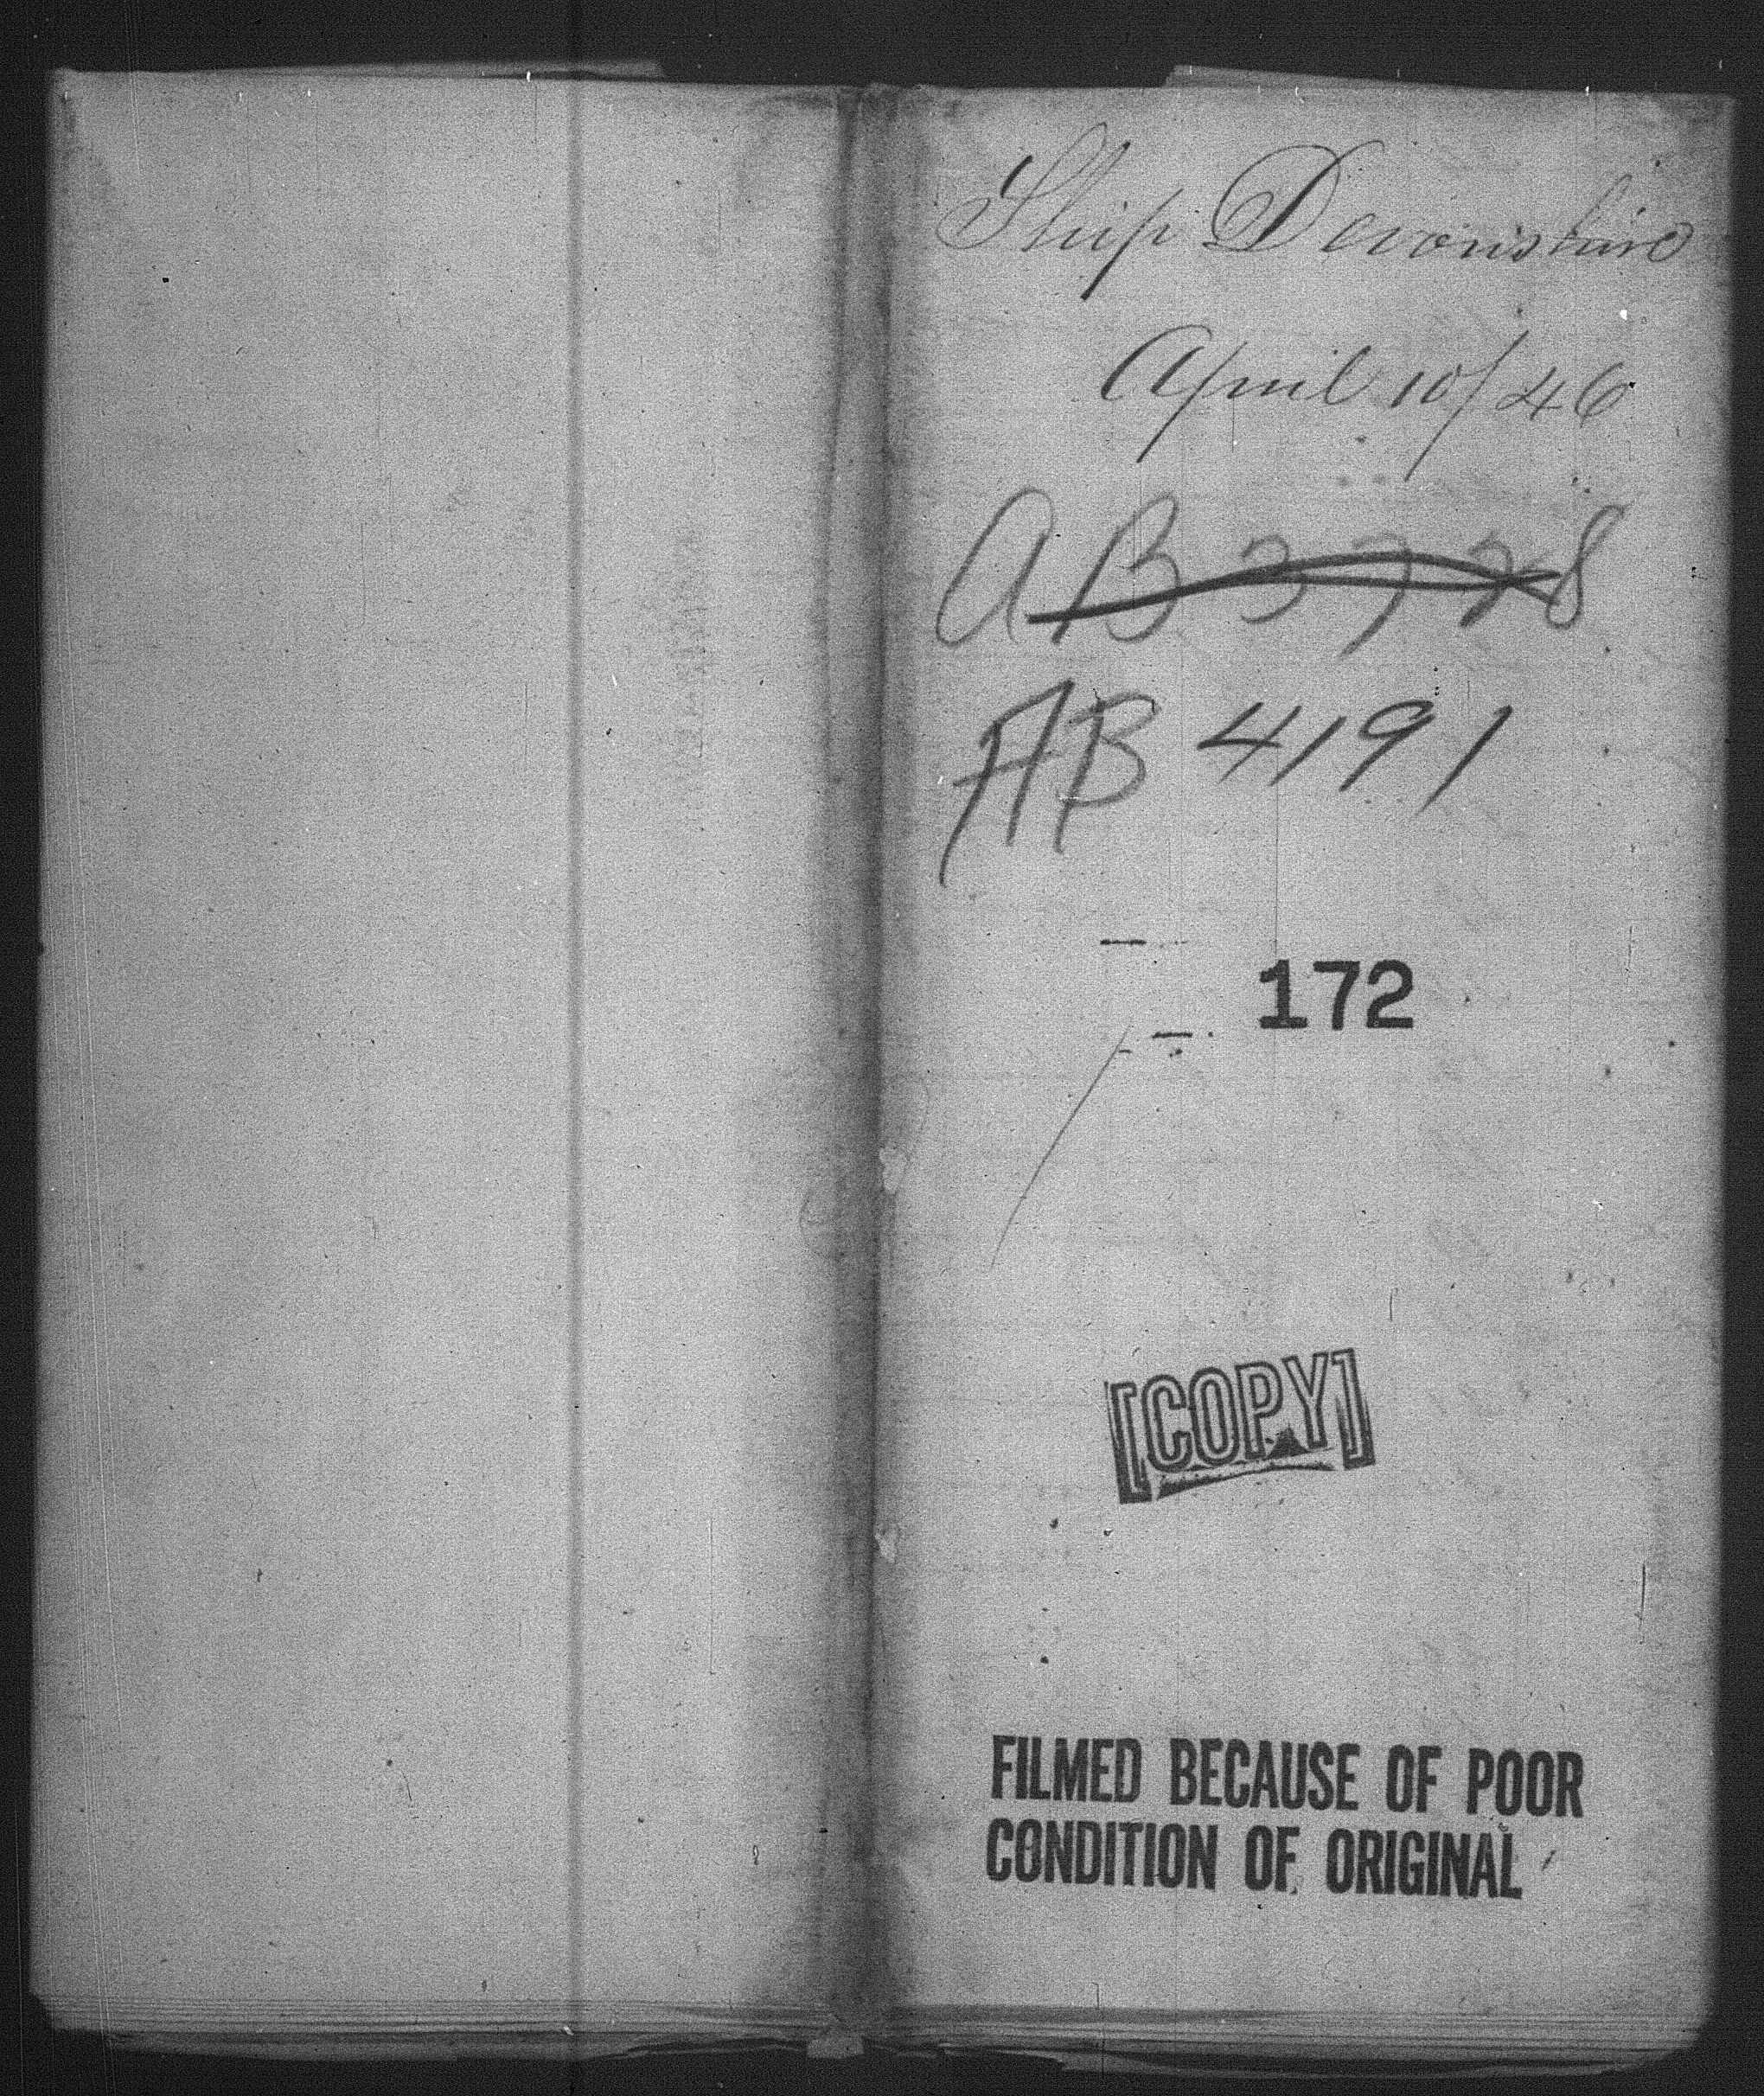 Ship Devonshire
April 10/46
AB 3728
AB 4191
172
[COPY]
FILMED BECAUSE OF POOR
CONDITION OF ORIGINAL